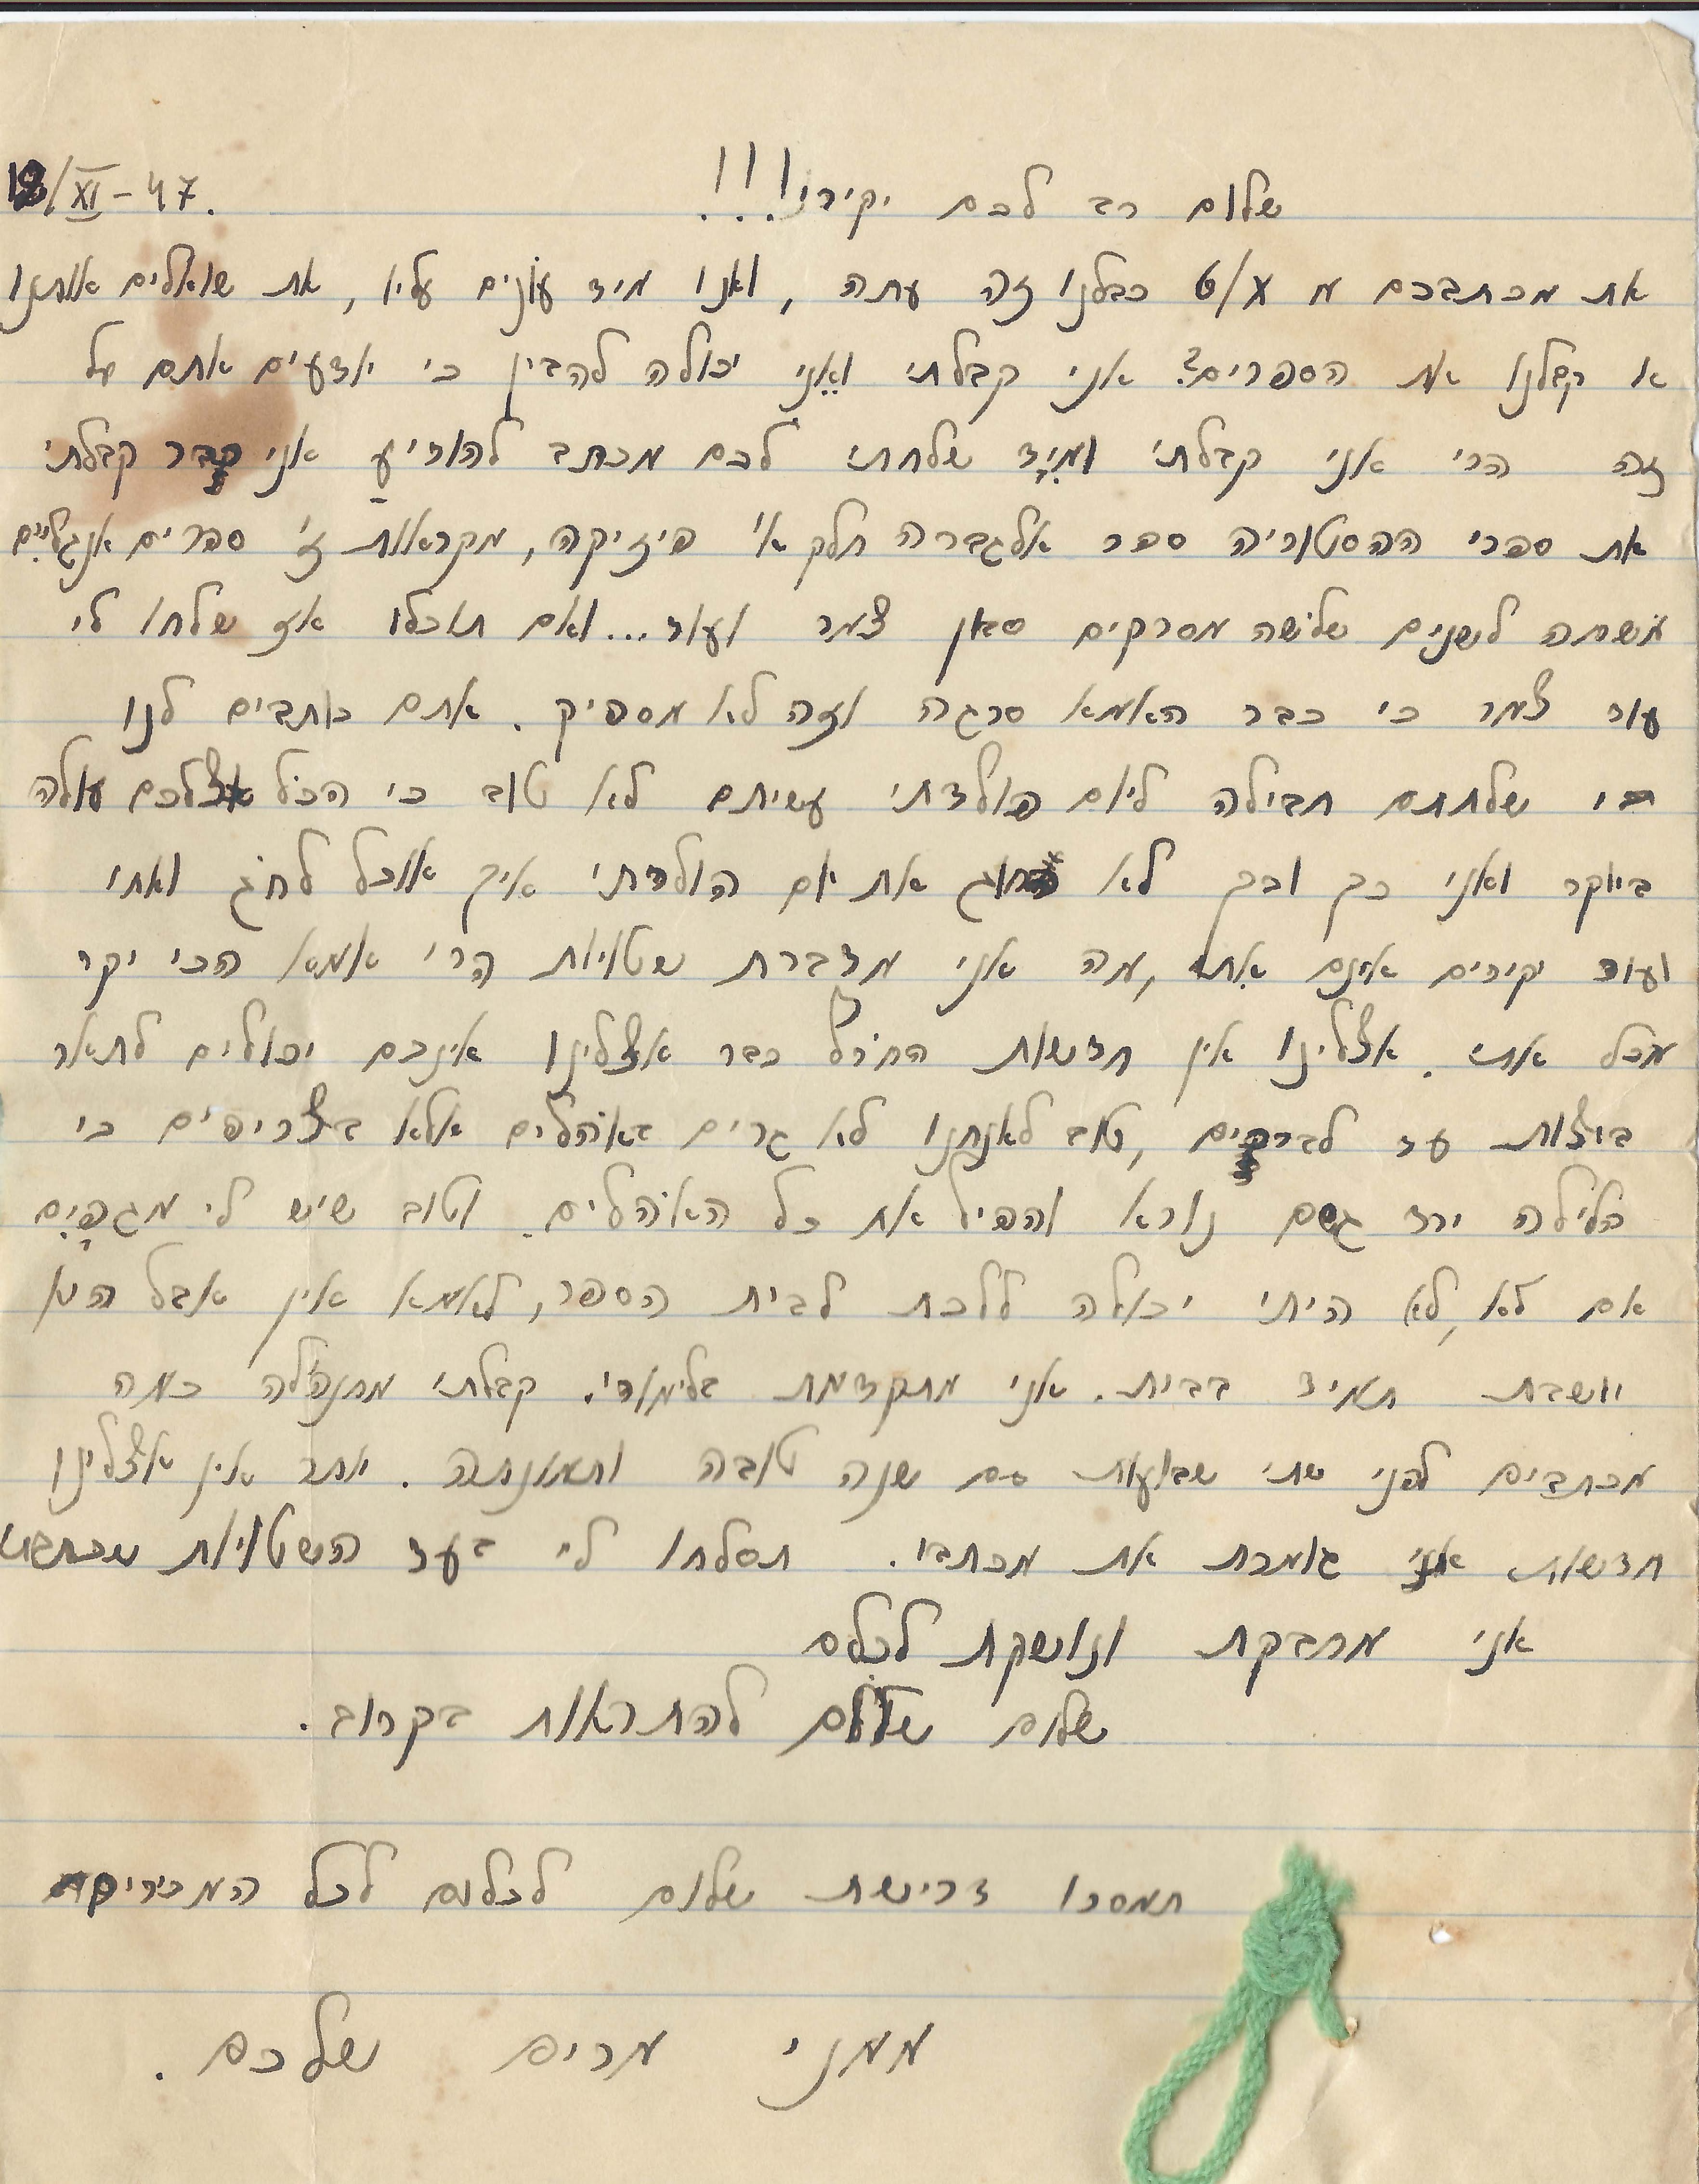 18/XI-47.
שלום רב לכם יקירי!!!
את מכתבכם מ 6/X כבלנו זה עתה, ואנו מיד עונים עליו, את שואלים אותנו
או קבלנו את הספרים? אני קבלתי ואני יכולה להבין כי יודעים אתם על
זה הרי אני קבלתי ומיד שלחתי לכם מכתב להודיע אני כבר קבלתי
את ספרי ההסטוריה ספר אלגברה חלק א' פיזיקה, מקראות ז' ספרים אנגליים
משחה לשנים שלושה מסרקים סבון צמר ועוד... ואם תוכלו אז שלחו לי
עוד צמר כי כבר האמא סרגה וזה לא מספיק. אתם כותבים לנו
כי שלחתם חבילה ליום הולדתי עשיתם לא טוב כי הכל אצלכם עולה
ביוקר ואני כך וכך לא אחוג את יום הולדתי איך אוכל לחוג ואחי
ועוד יקירים אינם אתי, מה אני מדברת שטויות הרי אמא הכי יקר
מכל אתי. אצלינו אין חדשות החורף כבר אצלינו אינכם יכולים לתאר
ביצות עד לברכים, טוב לאנחנו לא גרים באוהלים אלא בצריפים כי
הלילה ירד גשם נורא והפיל את כל האוהלים וטוב שיש לי מגפיים
אם לא, לא היתי יכולה ללכת לבית הספר, לאמא אין אבל היא
יושבת תמיד בבית. אני מתקדמת בלימודי. קבלתי מתנהלה כמה
מכתבים לפני שתי שבועות גם שנה טובה ותמונתה. יותר אין אצלינו
חדשות אני גומרת את מכתבי. תסלחו לי בעד השטויות שכתבתי
אני מחבקת ונושקת לכולם
שלום שלום להתראות בקרוב.
תמסרו דרישת שלום לכולם לכל המכירים
ממני מרים שלכם.